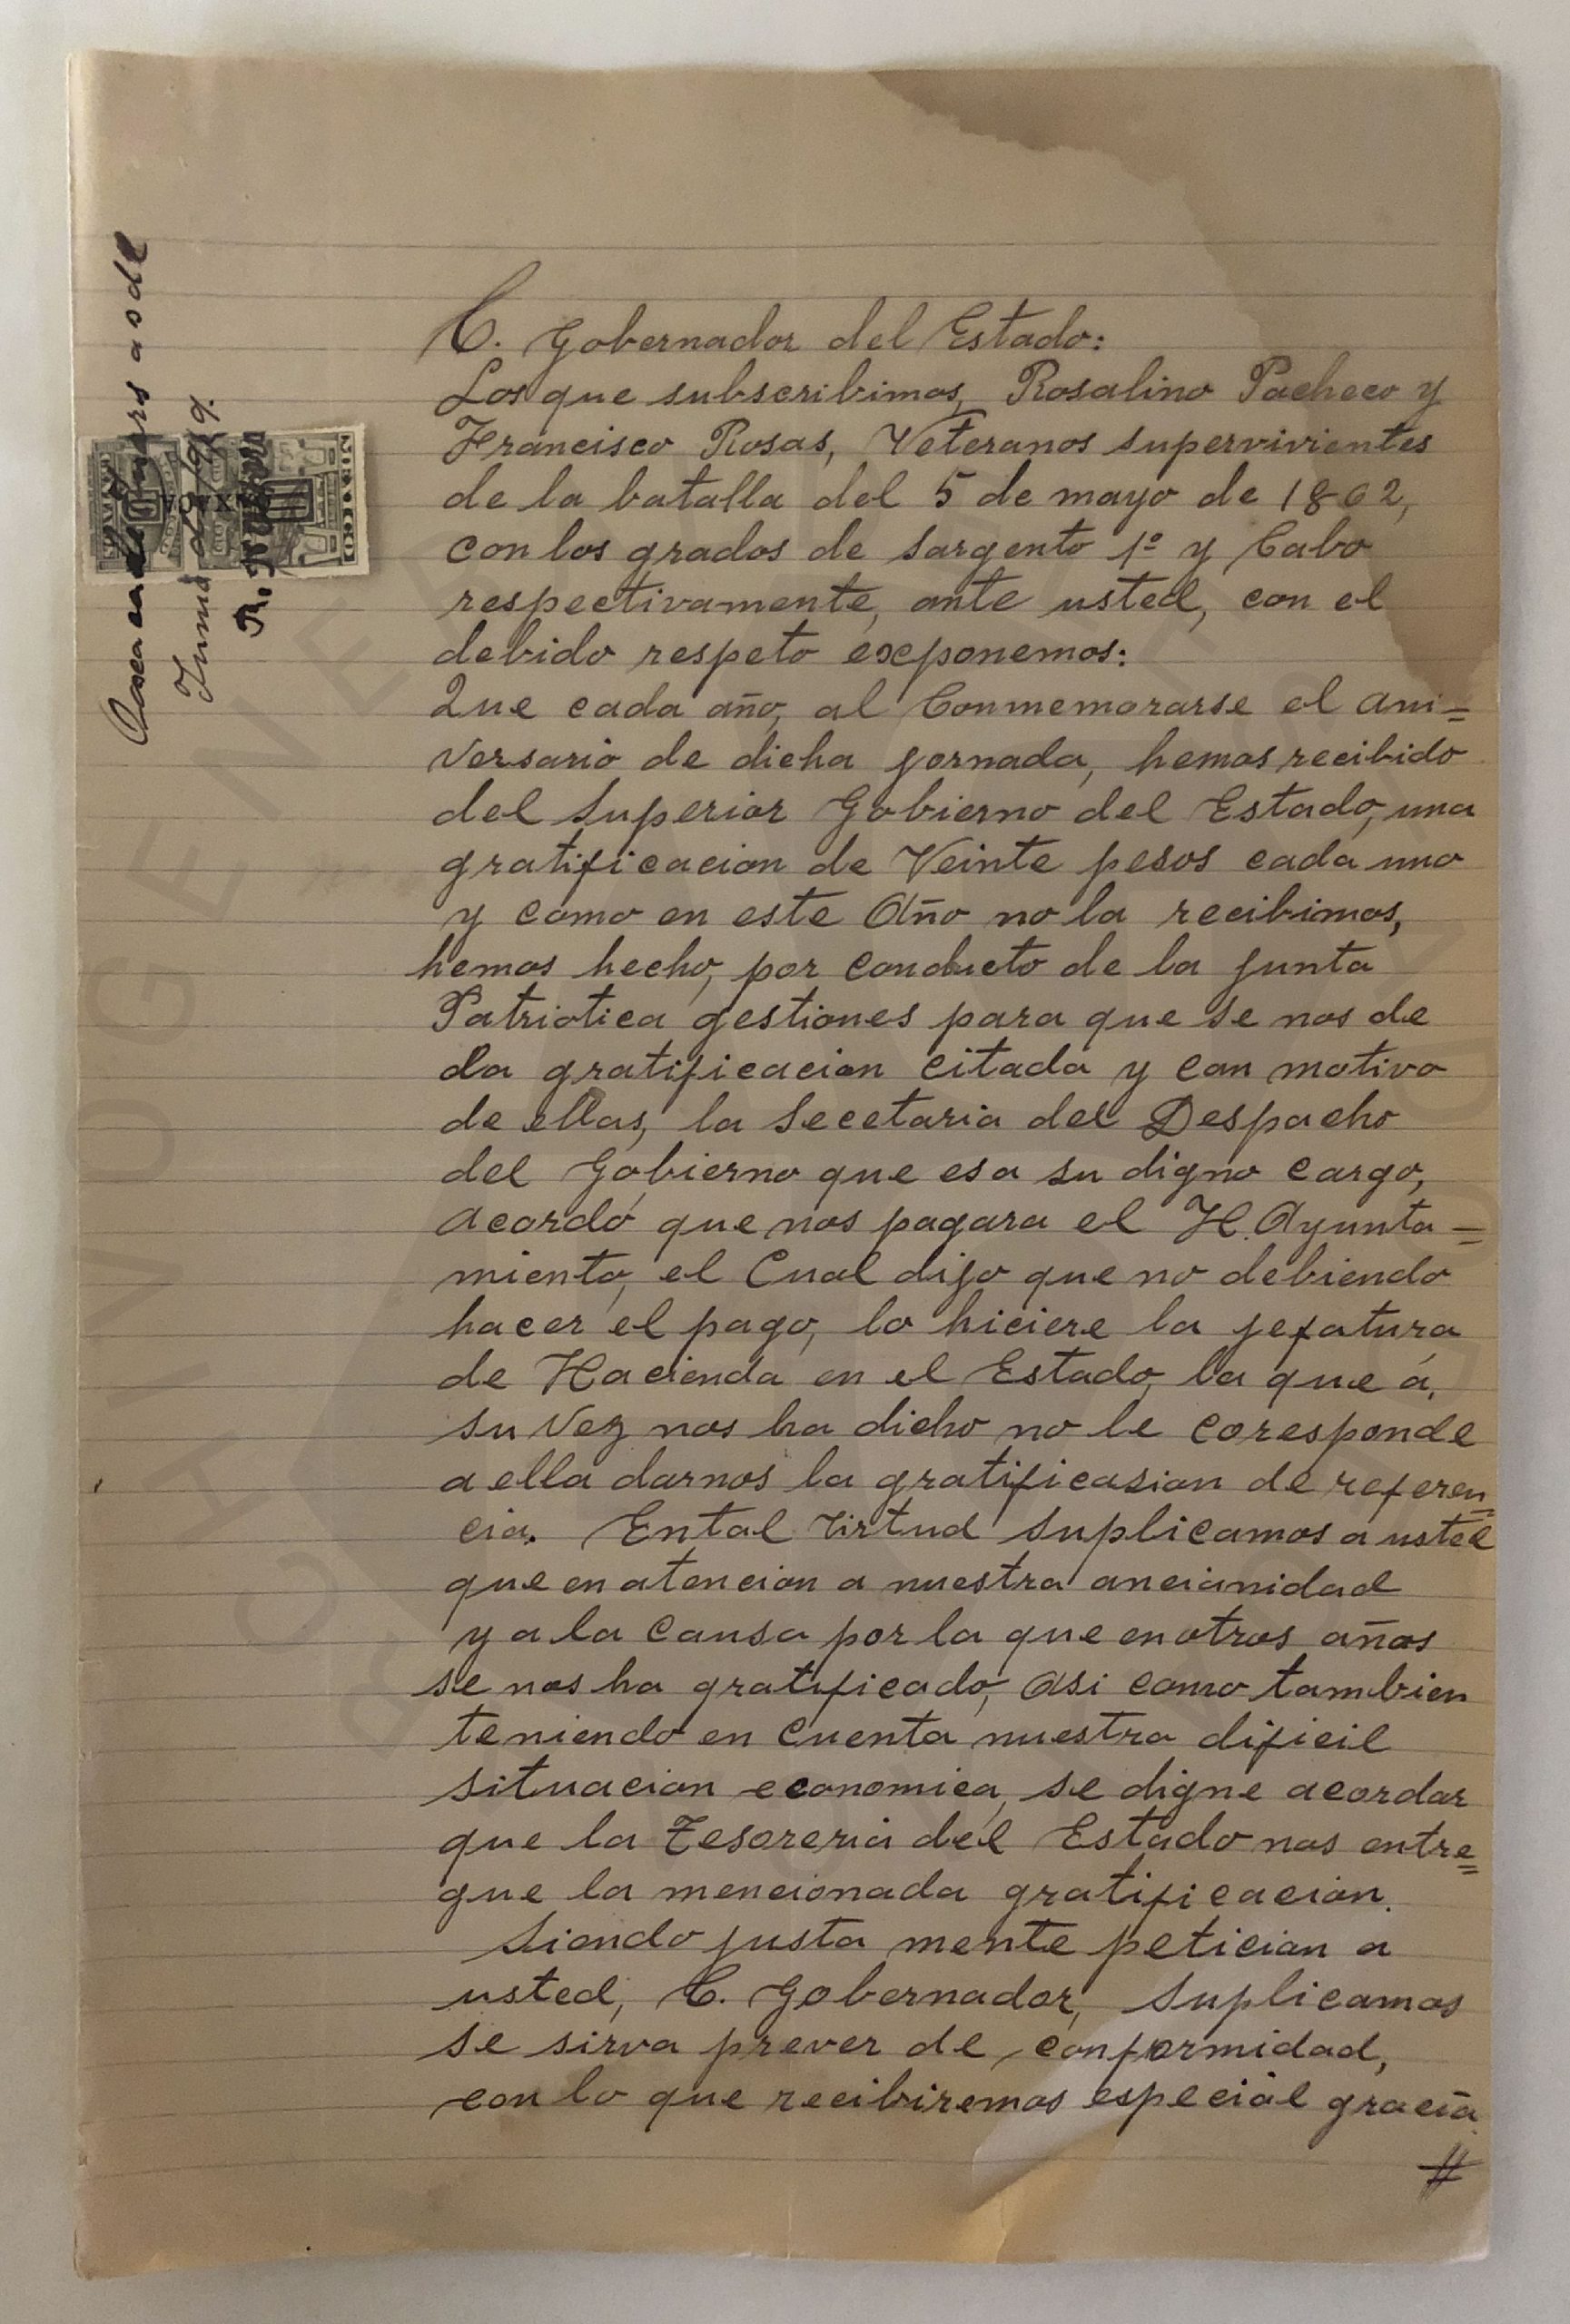 C. Gobernador del Estado:
Los que subscribimos, Rosalino Pacheco y
Francisco Rosas, Veteranos supervivientes
de la batalla del 5 de mayo de 1862,
con los grados de Sargento 1º y Cabo
respectivamente, ante usted, con el
debido respeto exponemos:
Que cada año, al Conmemorarse el ani=
versario de dicha jornada, hemos recibido
del Superior Gobierno del Estado, una
gratificacion de Veinte pesos cada uno
y como en este Año no la recibimos,
hemos hecho, por conducto de la junta
Patriotica gestiones para que se nos de
la gratificacion citada y con motivo
de ellas, la Secetaria del Despacho
del Gobierno que es a su digno cargo,
acordó que nos pagara el H. Ayunta=
miento, el Cual dijo que no debiendo
hacer el pago, lo hiciere la jefatura
de Hacienda en el Estado, la que á
su Vez nos ha dicho no le coresponde
a ella darnos la gratificasion de referen=
cia. En tal Virtud Suplicamos a usted
que en atencion a nuestra ancianidad
y a la Causa por la que en otros años
se nos ha gratificado, asi como tambien
teniendo en Cuenta nuestra dificil
situacion economica, se digne acordar
que la Tesoreria del Estado nos entre=
gue la mencionada gratificacion.
Siendo justa mente peticion a
usted, C. Gobernador, Suplicamos
se sirva prever de conformidad,
con lo que recibiremos especial gracia
#
Oaxaca de
as de
Junio de 1929.
MEXICO